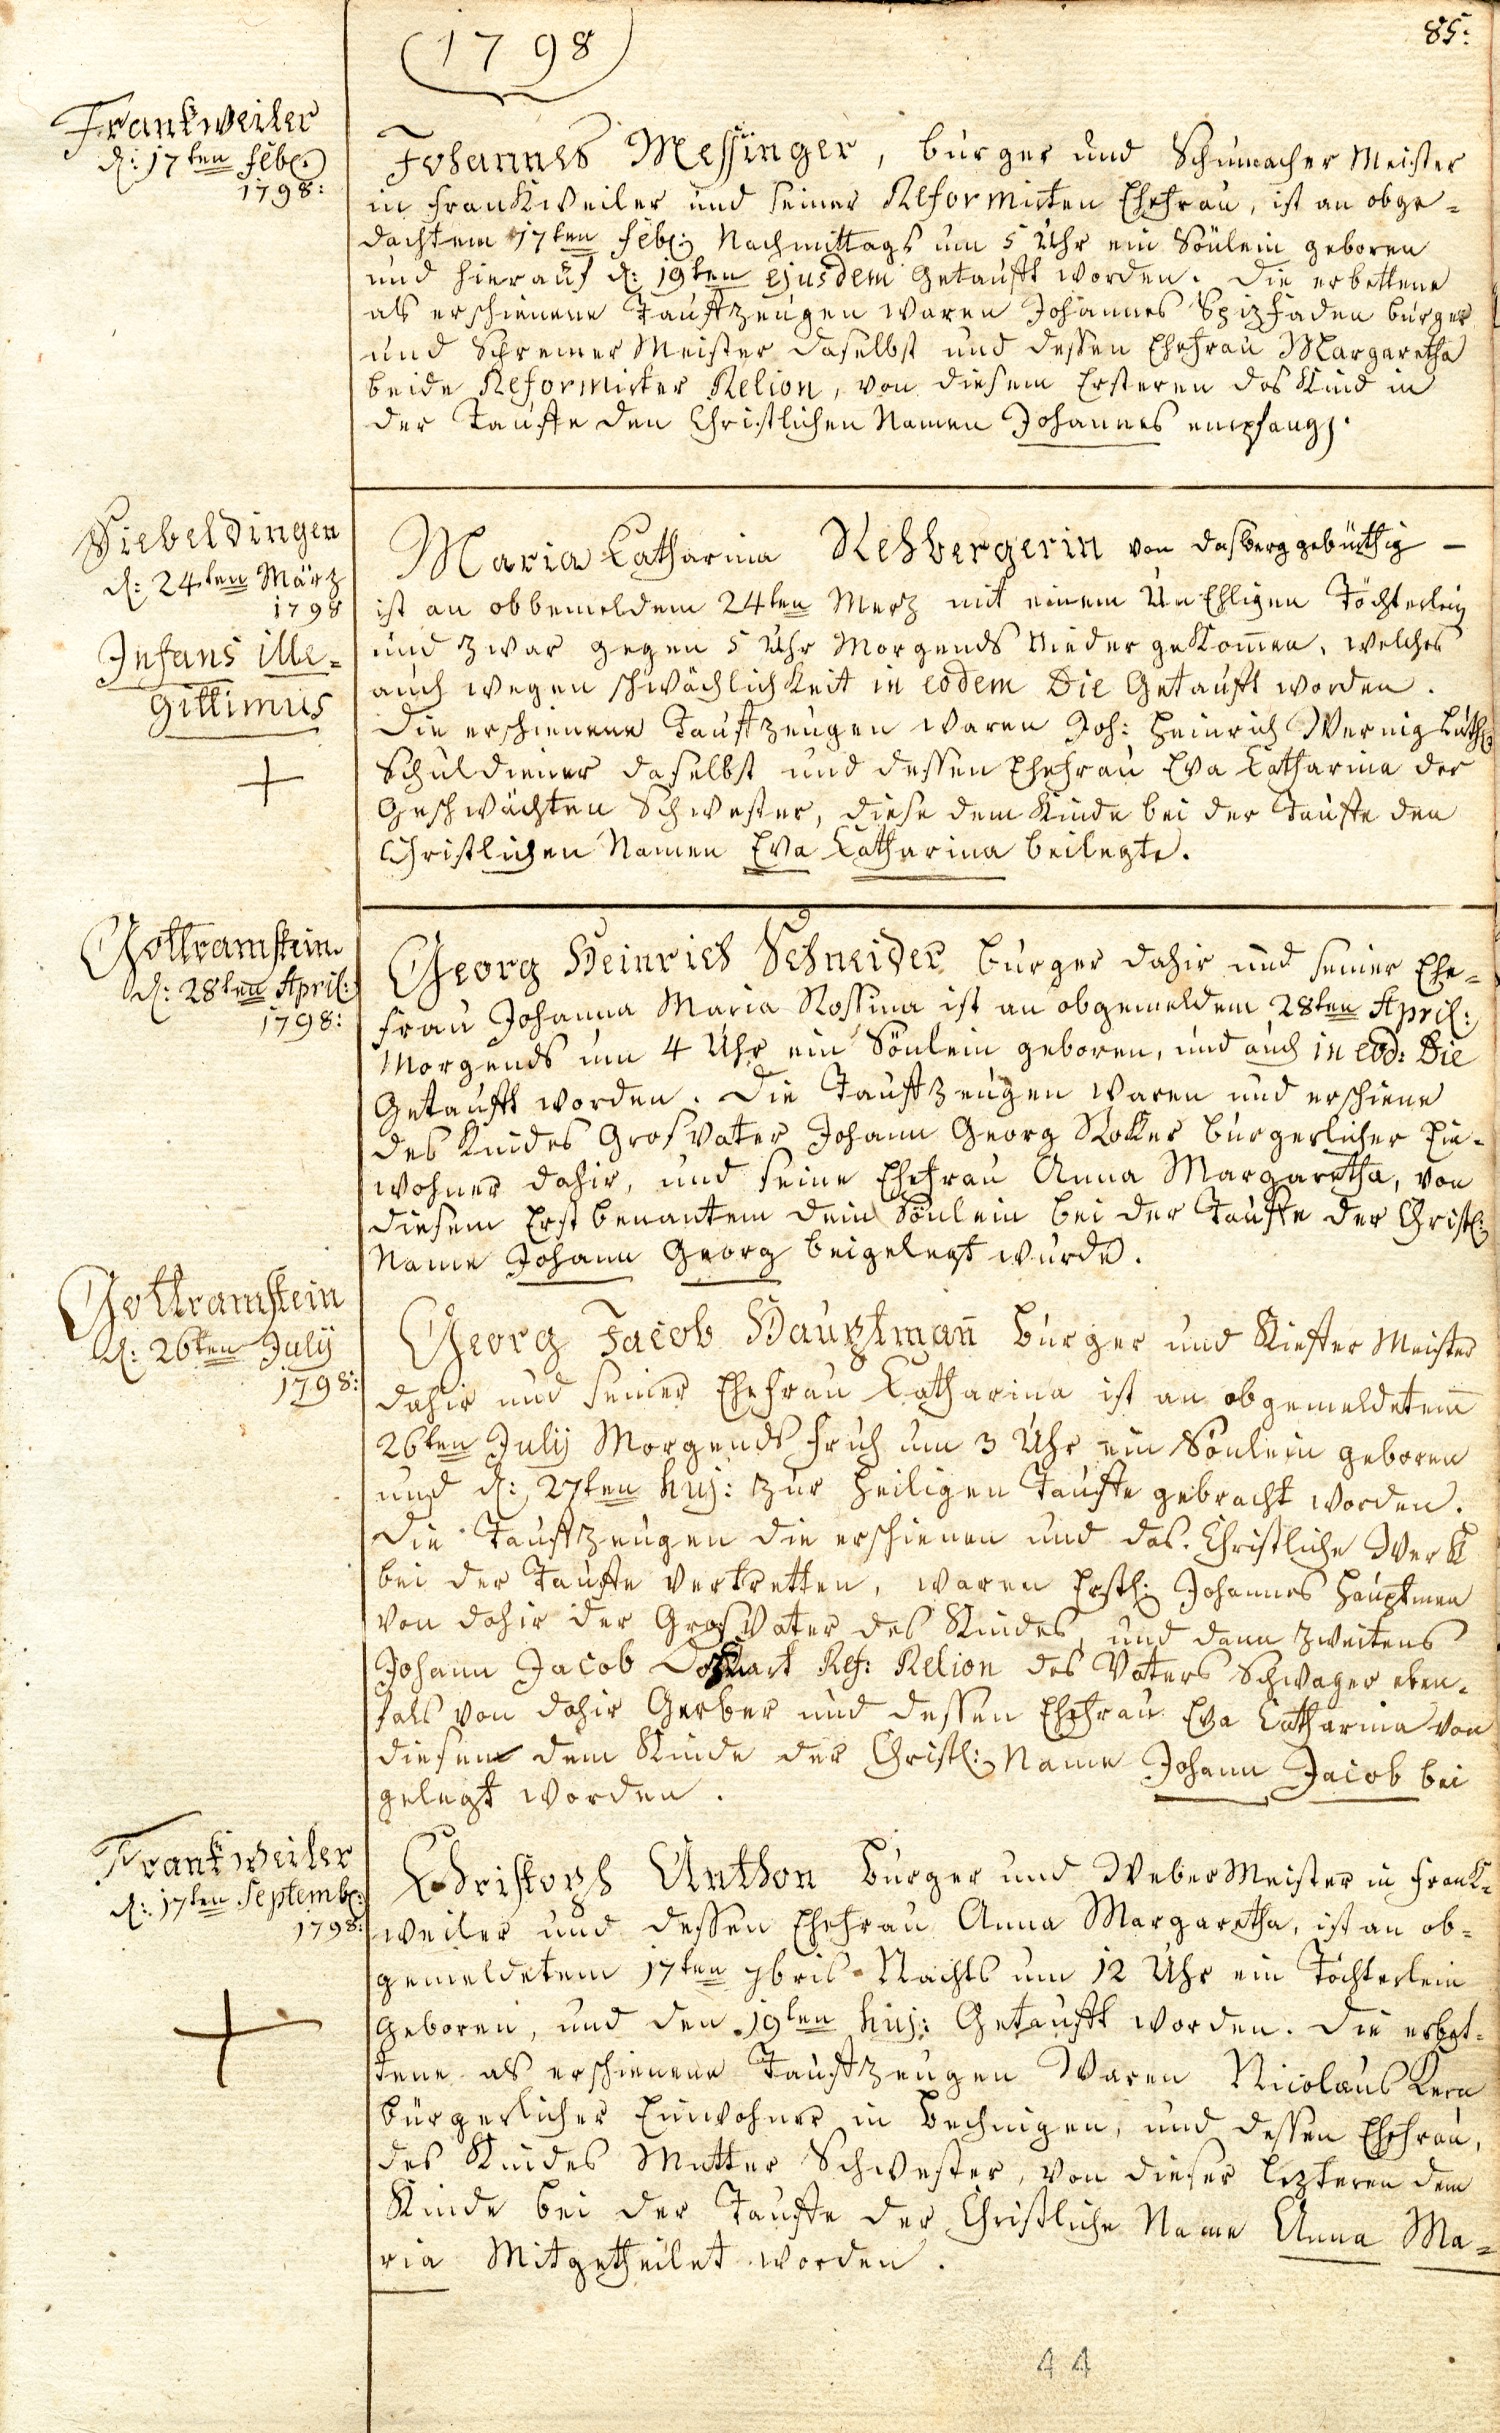 1798
85:
Frankweiler
d: 17ten Febr:
1798:
Johannes Messinger, burger und Schumacher Meister
in Frankweiler und seiner Reformirten Ehefrau, ist an obge=
dachtem 17ten Febr: Nachmittags um 5 Uhr ein Sönlein geboren
und hierauf d: 19ten ejusdem Getaufft worden. Die erbettene
als erschienene Tauffzeugen waren Johannes Spizfaden burger
und Schreiner Meister daselbst und dessen Ehefrau Margaretha
beide Reformirter Relion, von diesem Ersteren das Kind in
der Tauffe den Christlichen Namen Johannes empfang.
Siebeldingen
d: 24ten März
1798
Infans ille=
gittimus
Maria Catharina Rehbergerin von Dasberg gebürthig –
ist an obbemeldem 24ten Merz mit einem UnEhligen Töchterlein
und zwar gegen 5 Uhr Morgends Nieder gekomen, welches
auch wegen schwächlichkeit in eodem Die Getaufft worden.
Die erschienene Tauffzeugen waren Joh: Heinrich Wernig Luth:
Schuldiener daselbst und dessen Ehefrau Eva Catharina der
Geschwächten Schwester, diese dem Kinde bei der Tauffe den
Christlichen Namen Eva Catharina beilegte.
Gottramstein
d: 28ten April:
1798:
Georg Heinrich Schneider burger dahir und seiner Ehe=
frau Johanna Maria Rossina ist an obgemeldem 28ten April:
Morgends um 4 Uhr ein Sönlein geboren, und auch in eod: Die
Getaufft worden. Die Tauffzeugen waren und erschiene
des Kindes Grosvater Johann Georg bürgerlicher Ein=
wohner dahir, und seine Ehefrau Anna Margaretha, von
diesem Erstbenantem dem Sönlein bei der Tauffe der Christl:
Name Johann Georg beigelegt wurde.
Gottramstein
d: 26ten July
1798:
Georg Jacob Hauptmañ burger und Kieffer Meister
dahir und seiner Ehefrau Catharina ist an obgemeldetem
26ten July Morgends früh um 3 Uhr ein Sönlein geboren
und d: 27ten huj: zur Heiligen Tauffe gebracht worden.
Die Tauffzeugen die erschienen und das Christliche Werk
bei der Tauffe vertretten, waren Erstl: Johannes Hauptman
von dahir der Grosvater des Kindes, und dann zweitens
Johann Jacob Ref: Relion des Vaters Schwager eben=
fals von dahir Gerber und dessen Ehefrau Eva Catharina von
diesem dem Kinde der Christl: Name Johann Jacob bei
gelegt worden.
Frankweiler
d: 17ten Septemb:
1798:
Christoph Anthon burger und Weber Meister in Frank=
weiler und dessen Ehefrau Anna Margaretha, ist an ob=
gemeldetem 17ten 7bris Nachts um 12 Uhr ein Töchterlein
geboren, und den 19ten huj: Getaufft worden. Die erbet=
tene als erschienene Tauffzeugen Waren Nicolaus Kern
bürgerlicher Einwohner in Bechingen, und dessen Ehefrau,
des Kindes Mutter Schwester, von dieser lezteren dem
Kinde bei der Tauffe der Christliche Name Anna Ma=
ria Mitgetheilet worden.
44